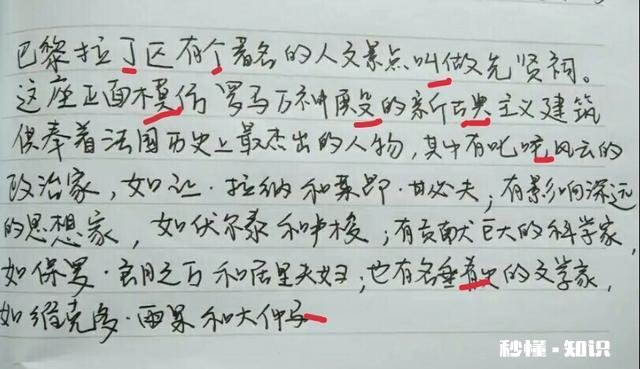 巴黎拉丁区有个著名的人文景点叫做先贤祠。
这座正面模仿罗马万神殿的新古典主义建筑
供奉着法国历史上最杰出的人物，其中有叱咤风云的
政治家，如让·拉纳和莱昂·甘必夫；有影响深远
的思想家，如伏尔泰和卢梭；有贡献巨大的科学家，
如保罗·朗之万和居里夫妇；也有名垂青史的文学家，
如维克多·雨果和大仲马
秒懂·知识